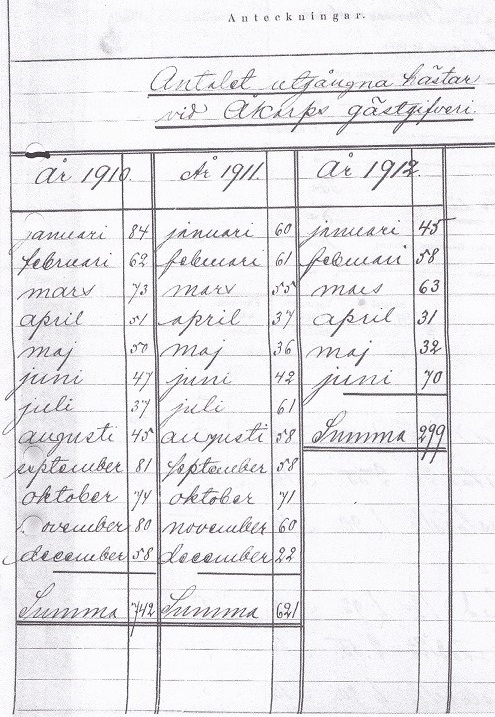 Anteckningar.
Antalet utgångna hästar
vid Åkarps gästgifveri.
År 1910. År 1911. År 1912.
januari 84 januari 60 januari 45
februari 62 februari 61 februari 58
mars 73 mars 55 mars 63
april 51 april 37 april 31
maj 50 maj 36 maj 32
juni 47 juni 42 juni 70
juli 37 juli 61
augusti 45 augusti 58 Summa 299
september 81 september 58
oktober 74 oktober 71
ovember 80 november 60
december 58 december 22
Summa 742 Summa 621